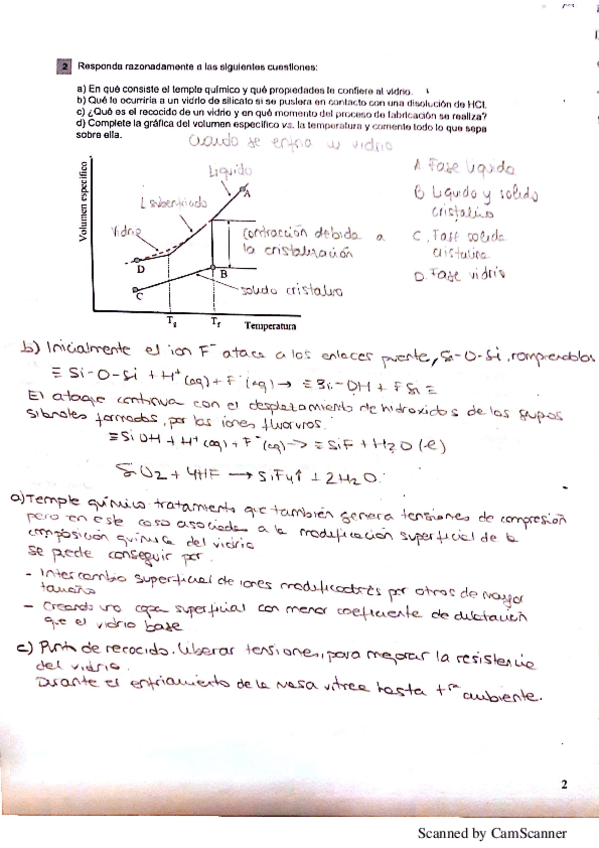 2 Responda razonadamente a las siguientes cuestiones:
a) En qué consiste el temple químico y qué propiedades le confiere al vidrio.
b) Qué le ocurriría a un vidrio de silicato si se pusiera en contacto con una disolución de HCl.
c) ¿Qué es el recocido de un vidrio y en qué momento del proceso de fabricación se realiza?
d) Complete la gráfica del volumen específico vs. la temperatura y comente todo lo que sepa
sobre ella.
Cuando se enfria un vidrio
Volumen específico
Líquido
A
L subenfriado
Vidrio
D
contracción debida a
la cristalización
B
C
solido cristalino
Tg
Tf
Temperatura
A. Fase líquida
B. Líquido y solido
cristalino
C. Fase solida
cristalina
D. Fase vidrio
b) Inicialmente el ion F⁻ ataca a los enlaces puente, Si-O-Si, rompiendolos
≡ Si-O-Si + H⁺(aq) + F⁻(aq) → ≡ Si-OH + FSi ≡
El ataque continua con el desplazamiento de hidroxidos de los grupos
silanoles formados, por los iones fluoruros.
≡SiOH + H⁺(aq) + F⁻(aq) → ≡SiF + H2O (l)
SiO2 + 4HF → SiF4↑ + 2H2O.
a) Temple químico tratamiento que también genera tensiones de compresión
pero en este caso asociada a la modificación superficial de la
composición química del vidrio
se puede conseguir por:
- Intercambio superficial de iones modificadores por otros de mayor
tamaño
- Creando una capa superficial con menor coeficiente de dilatación
que el vidrio base
c) Punto de recocido. Liberar tensiones, para mejorar la resistencia
del vidrio.
Durante el enfriamiento de la masa vitrea hasta tra ambiente.
2
Scanned by CamScanner